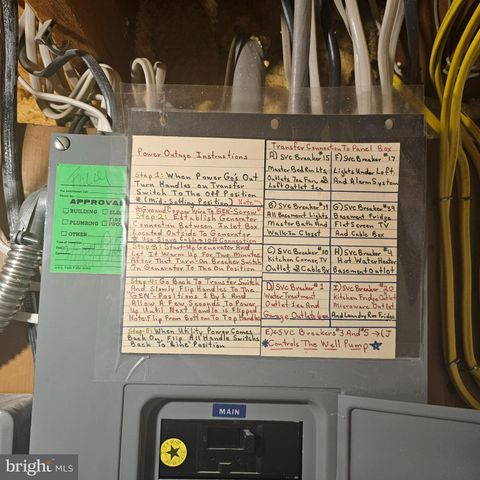 Final
APPROVAL
BUILDING
PLUMBING
OTHER
Power Outage Instructions
Step 1: When Power Go's Out
Turn Handles on Transfer
Switch To The Off Position
(Mid-Setting Position) Note
Connection Between Inlet Box
Located Outside To Generator
Start Up Generator And
Let It Warm Up For Two Minutes
After That Turn-On Breaker Switch
On Generator To The On Position
Step 4: Go Back To Transfer Switch
And Slowly Flip Handles To The
"GEN" Positions 1 By 1 And
Allow A Few Seconds To Power
Up Until Next Handle Is Flipped
Note: Flip From Bottom To Top Handles
Step 5: When Utility Power Comes
Back On, Flip All Handle Switchs
Back To "Line" Position
Transfer Connection To Panel Box
A) SVC Breaker #15
Master Bed Rm Ltg
Outlets Fan Four &
Loft Outlet
F) SVC Breaker #17
Lights Under Loft
And Alarm System
B) SVC Breaker #19
All Basement Lights
Master Bath And
Walk-In Closet
G) SVC Breaker #39
Basement Fridge
Flat Screen TV
And Cable Box
C) SVC Breaker #10
Kitchen Corner TV
Outlet & Cable Box
H) SVC Breaker #4
Hot Water Heater
Basement Outlet
D) SVC Breaker #1
Water Treatment
Outlet
Garage Outlet
I) SVC Breaker #20
Kitchen Fridge Outlet
Microwave Outlet
And Laundry Rm Fridge
E) SVC Breakers #3 And #5 → (J
Controls The Well Pump
MAIN
bright MLS